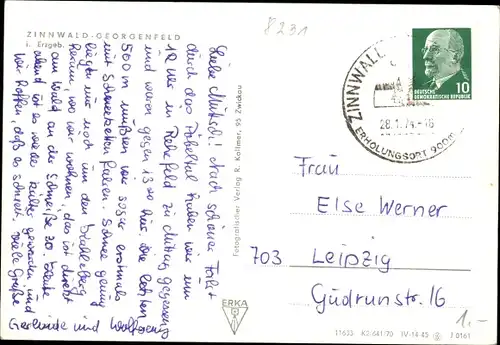 8231
ZINNWALD-GEORGENFELD
i. Erzgeb.
Liebe Mutsch! Nach schöner Fahrt
durch das Pöbeltal haben wir um
12 Uhr in Rehefeld zu Mittag gegessen
und waren gegen 13.30 hier. Die letzten
500 m mußten wir sogar erstmals
mit Schneeketten fahren. Schnee genug
liegt nur noch um den Kahleberg
herum, wo wir wohnen, das ist direkt
am Wald an der
abend ist es wieder kälter geworden und
wir hoffen, daß es schneit. Viele Grüße
Gerlinde und Wolfgang
Fotografischer Verlag R. Kallmer, 95 Zwickau
ERKA
ZINNWALD
28.1.74.-16
ERHOLUNGSORT 900m
DEUTSCHE
DEMOKRATISCHE REPUBLIK
10
Frau
Else Werner
703 Leipzig
Gudrunstr. 16
1.-
11655 K2/641/70 IV-14-45 J 0161